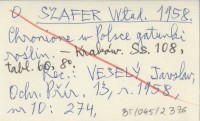 O SZAFER Wład. 1958.
Chronione w Polsce gatunki
roślin. – Kraków. Ss. 108,
tabl. 60, 80.
Rec.: VESELÝ Jaroslav,
Ochr. Přír. 13, r. 1958,
nr 10: 274,